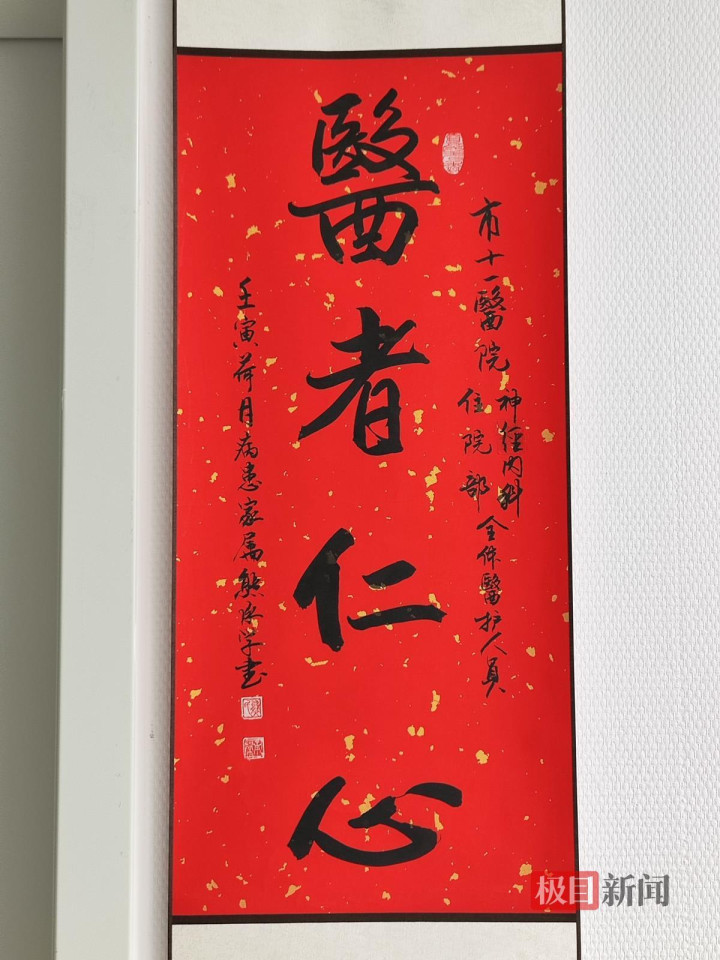 市十一醫院
神經内科
住院部
全体醫护人員
醫者仁心
壬寅荷月病患家属熊承学书
极目新闻